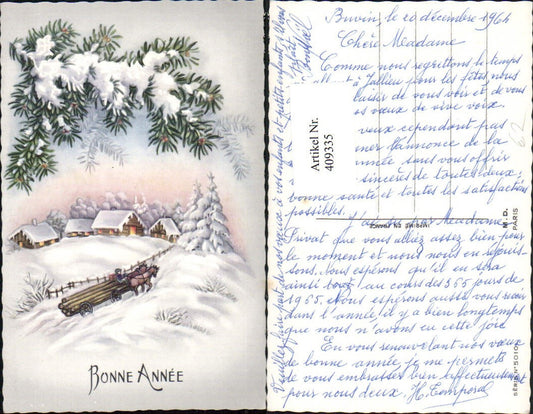 BONNE ANNÉE
le 20 décembre 1964
Chère Madame
Comme nous regrettons le temps
à Jallieu pour les fêtes, nous
de vous voir et de
vœux de vive voix.
cependant pas
l'annonce de la
année sans vous offrir
sincères de toutes
bonne santé et toutes les satisfactions
possibles.
Madame
Privat que vous alliez bien pour
le moment et nous nous en réjouis-
sons. Nous espérons qu'il en sera
ainsi au cours des 365 jours de
1965, et nous espérons aussi vous revoir
dans l'année, il y a bien longtemps
que nous n'avons eu cette joie
En vous renouvelant nos vœux
de bonne année je me permets
de vous embrasser bien affectueusement
pour nous deux.
Artikel Nr.
409335
62
IMPRIMÉ EN FRANCE
M.D.
PARIS
SÉRIE N° 5010